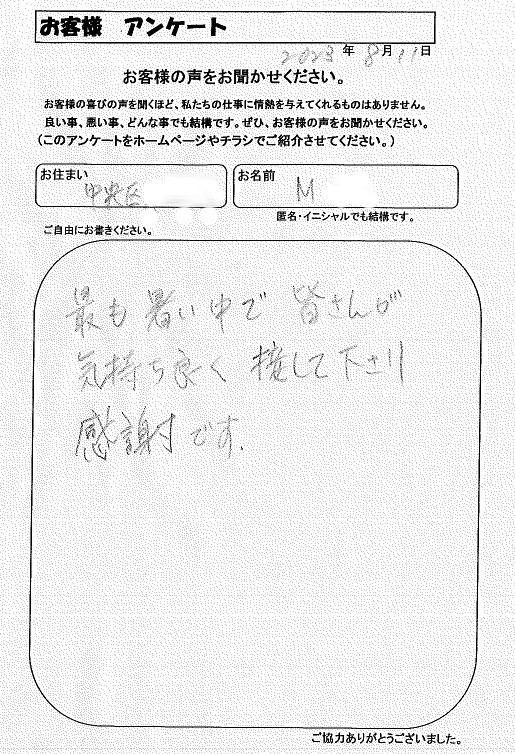 お客様 アンケート
2023年8月11日
お客様の声をお聞かせください。
お客様の喜びの声を聞くほど、私たちの仕事に情熱を与えてくれるものはありません。
良い事、悪い事、どんな事でも結構です。ぜひ、お客様の声をお聞かせください。
(このアンケートをホームページやチラシでご紹介させてください。)
お住まい
中央区
お名前
M
匿名・イニシャルでも結構です。
ご自由にお書きください。
最も暑い中で 皆さんが
気持ち良く 接して下さり
感謝です.
ご協力ありがとうございました。